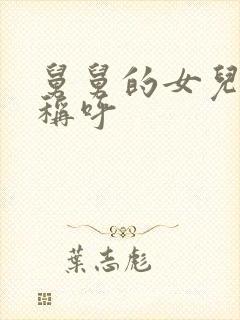 舅舅的女兒
稱呼
葉志彪